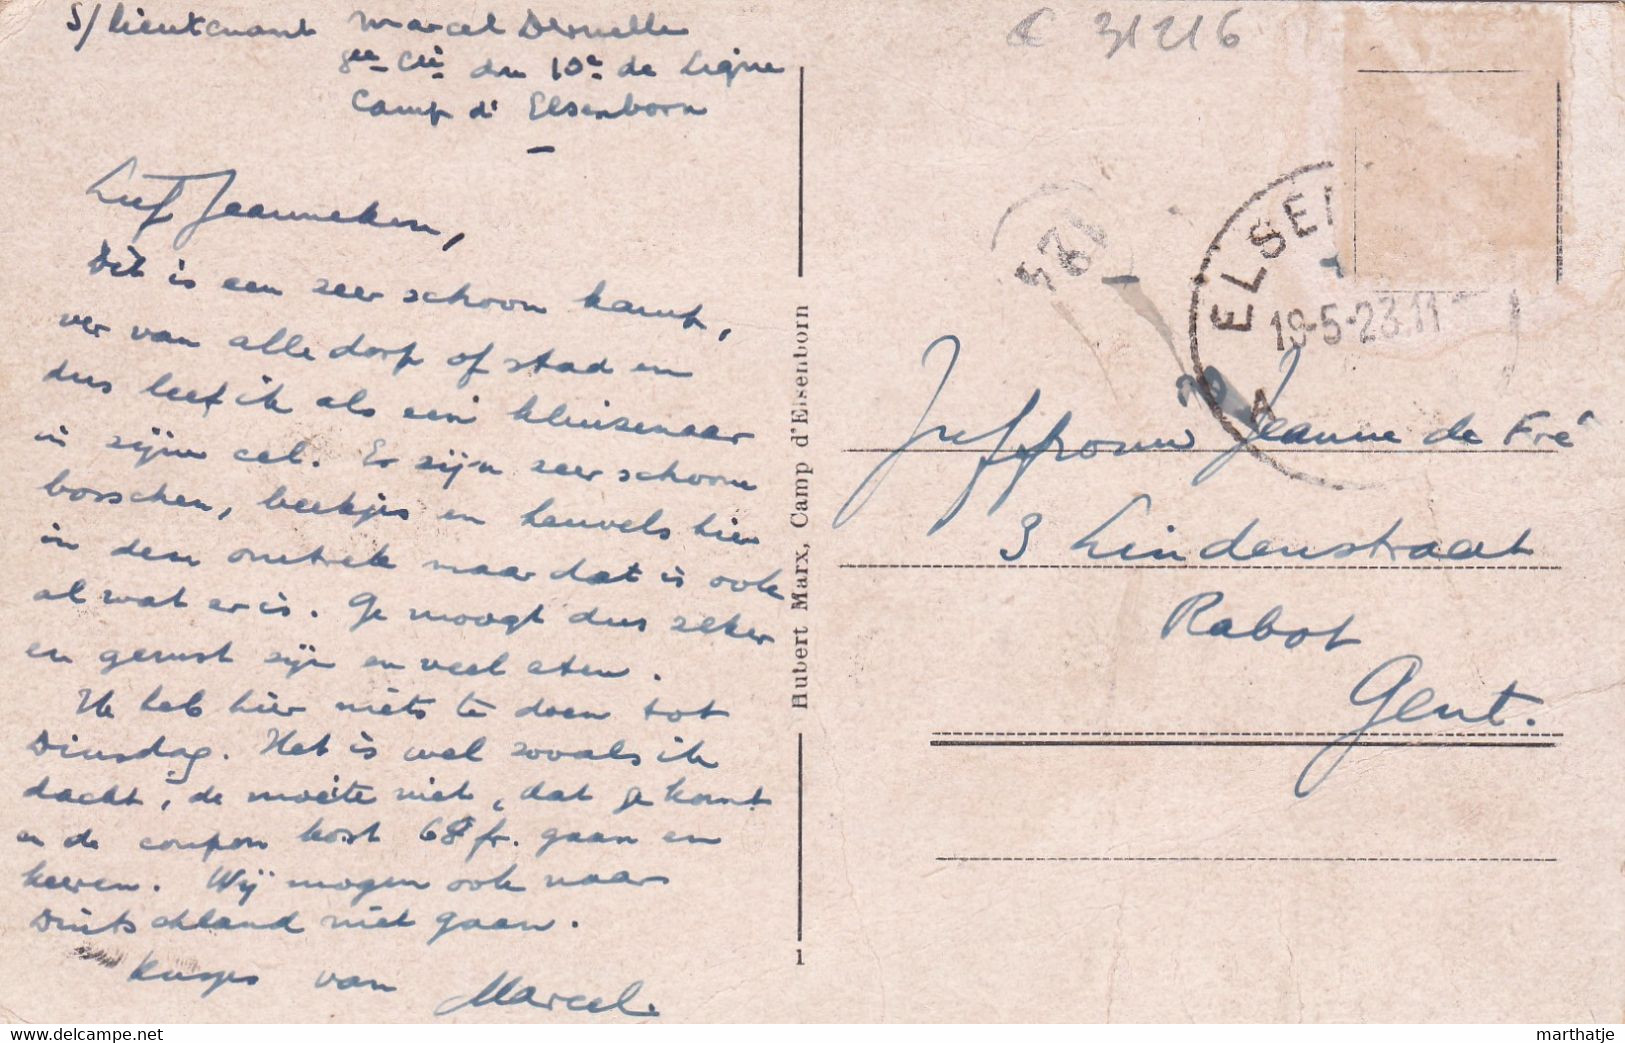 S/Lieutenant Marcel
8ee Cie du 10e de Ligne
Camp d'Elsenborn
Lief Jeanneken,
Dit is een zeer schoon kamp,
ver van alle dorp of stad en
dus leef ik als een kluisenaar
in zijn cel. Er zijn zeer schoone
bosschen, beekjes en heuvels hier
in den omtrek maar dat is ook
al wat er is. Ge moogt dus zeker
en gerust zijn en veel eten.
Ik heb hier niets te doen tot
Dinsdag. Het is wel zooals ik
dacht, de moeite niet, dat ge komt
en de coupon kost 68 fr. gaan en
keeren. Wij mogen ook naar
Duitschland niet gaan.
Kusjes van Marcel.
Hubert Marx, Camp d'Elsenborn
1
31216
124
ELSE
19-5-23 11
A
Juffrouw Jeanne de Fré
3 Lindenstraat
Rabot
Gent.
delcampe.net
marthatje